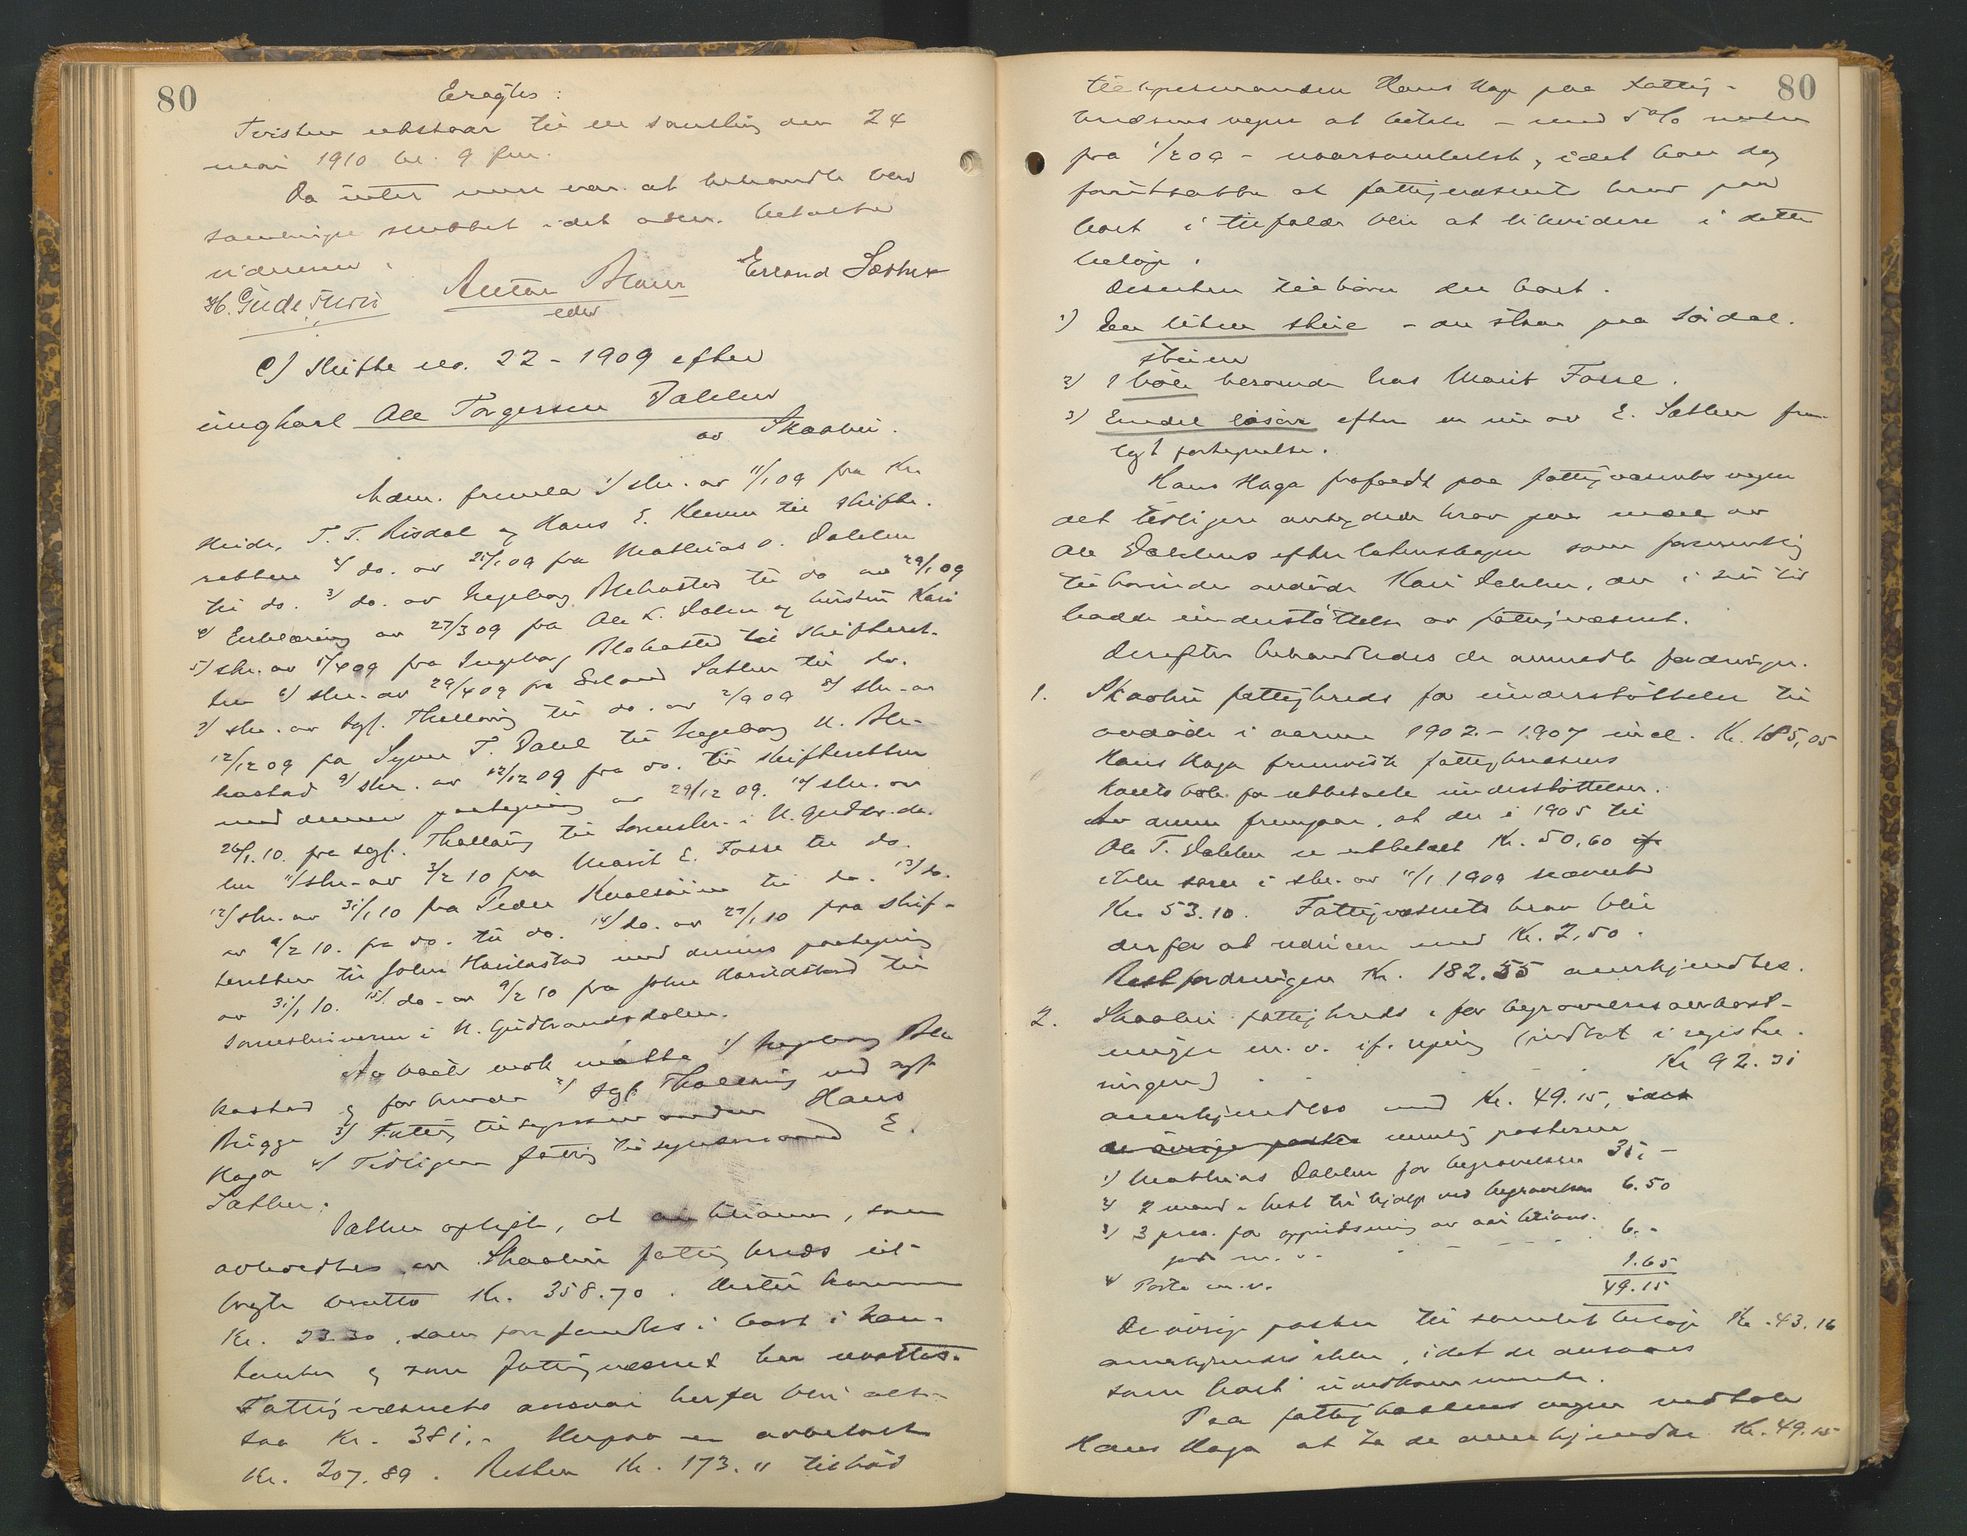 80
Eragtes:
Tvisten utstaar til en samling den 24
mai 1910 kl. 9 fm.
Da intet mere var at behandle blev
samlingen sluttet idet adm. betalte
vidnerne.
H. Gude Thiis Anton Blaser Erland Sæther
edsv
C) Skifte no. 22 - 1909 efter
ungkarl Ole Torgersen Dahlen
av Skaabu.
Adm. fremla 1/ skr. av 11/1 09 fra Kr.
Heide, T. T. Risdal og Hans E. Klevm til skifte-
retten 2/ do. av 21/1 09 fra Mathias O. Dahlen
til do. 3/ do. av Ingeborg Blekastad til do av 29/1 09
4/ Erklæring av 27/3 09 fra Ole L. Dalen og hustru Kari
5/ skr. av 5/4 09 fra Ingeborg Blekastad til skifteret-
ten 6/ skr. av 29/4 09 fra Erland Sæther til do.
7/ skr. av sgf. Thallaug til do. av 2/9 09 8/ skr. av
12/12 09 fra Synne T. Dahl til Ingeborg U. Ble-
kastad 9/ skr. av 12/12 09 fra do. til skifteretten
med dennes paategning av 29/12 09. 10/ skr. av
26/1.10. fra sgf. Thallaug til Sorenskr. i N. Gudbr.da-
len 11/ skr. av 3/2 10 fra Marit E. Fosse til do.
12/ skr. av 31/1 10 fra Peder Kvolsöien til do. 13/ do.
av 9/2 10. fra do. til do. 14/ do. av 27/1 10 fra skif-
teretten til John Harildstad med dennes paategning
av 31/1 10. 15/ do. av 9/2 10 fra John Harildstad til
Sorenskriveren i N. Gudbrandsdalen.
Av vedk. mötte 1/ Ingeborg Ble
kastad og for hende 2/ sgf. Thallaug ved sgf.
Brügge 3/ Fattigtilsynsmanden Hans
Haga 4/ Tidligere fattigtilsynsmand E.
Sæther.
Sæther oplyste, at auktionen, som
avholdtes av Skaabu fattigkreds ut-
bragte brutto Kr. 358.70. Hertil kommer
Kr. 23.30, som forefandtes i boet i kon-
tanter og som fattigvæsenet har mottat.
Fattigvæsenets ansvar herfor blir alt-
saa Kr. 381,- Herpaa er avbetalt
Kr. 207.89. Resten Kr. 173.11 tilböd
80
tilsynsmanden Hans Haga paa Fattig-
kredsens vegne at betale - med 5% renter
fra 1/2 09 - naarsomhelst, idet han dog
forutsatte at fattigvæsenets krav paa
boet i tilfælde blir at likvidere i dette
belöp.
Desuten tilhörer der boet.
1) En liten skue - der staar paa Sördal.
steien
2) 1 bök beroende hos Marit Fosse.
3) Endel lösöre efter en nu av E. Sæther frem-
lagt fortegnelse.
Hans Haga frafaldt paa fattigvæsenets vegne
det tidligere antydede krav paandel av
Ole Dahlens efterladenskaper som formentlig
tilhörende avdöde Kari Dahlen, der i sin tid
hadde understöttelse av fattigvæsenet.
Derefter behandledes de anmeldte fordringer.
1. Skaabu fattigkreds for understöttelse til
avdöde i aarene 1902 - 1907 incl. Kr. 185,05
Hans Haga fremviste fattigkredsens
kontobok for utbetalte understöttelser.
Av denne fremgaar, at der i 1905 til
Ole T. Dahlen er utbetalt Kr. 50,60 og
ikke som i skr. av 11/1 1909 nævnt
Kr. 53.10. Fattigvæsenets krav blir
derfor at reducere med Kr. 2,50.
Restfordringen Kr. 182.55 anerkjendtes.
2. Skaabu fattigkreds, for begravelsesomkost-
ninger m. v. if. regning (indtat i registre-
ringen) Kr. 92.31
anerkjendtes med Kr. 49.15, idet
de övrige poster nemlig posterne
1) Mathias Dahlen for begravelsen 35,-
2/ 2 mand + hest til hjælp ved begravelsen 6.50
3/ 3 pers. for oppudsning av auktions-
gods m. v. 6.-
4/ Porto m. v. 1.65
49.15
De övrige poster til samlet belöp Kr. 43.16
anerkjendes ikke, idet de ansees
som boet uvedkommende.
Paa fattigkassens vegne vedtok
Hans Haga at ta de anerkjendte Kr. 49.15